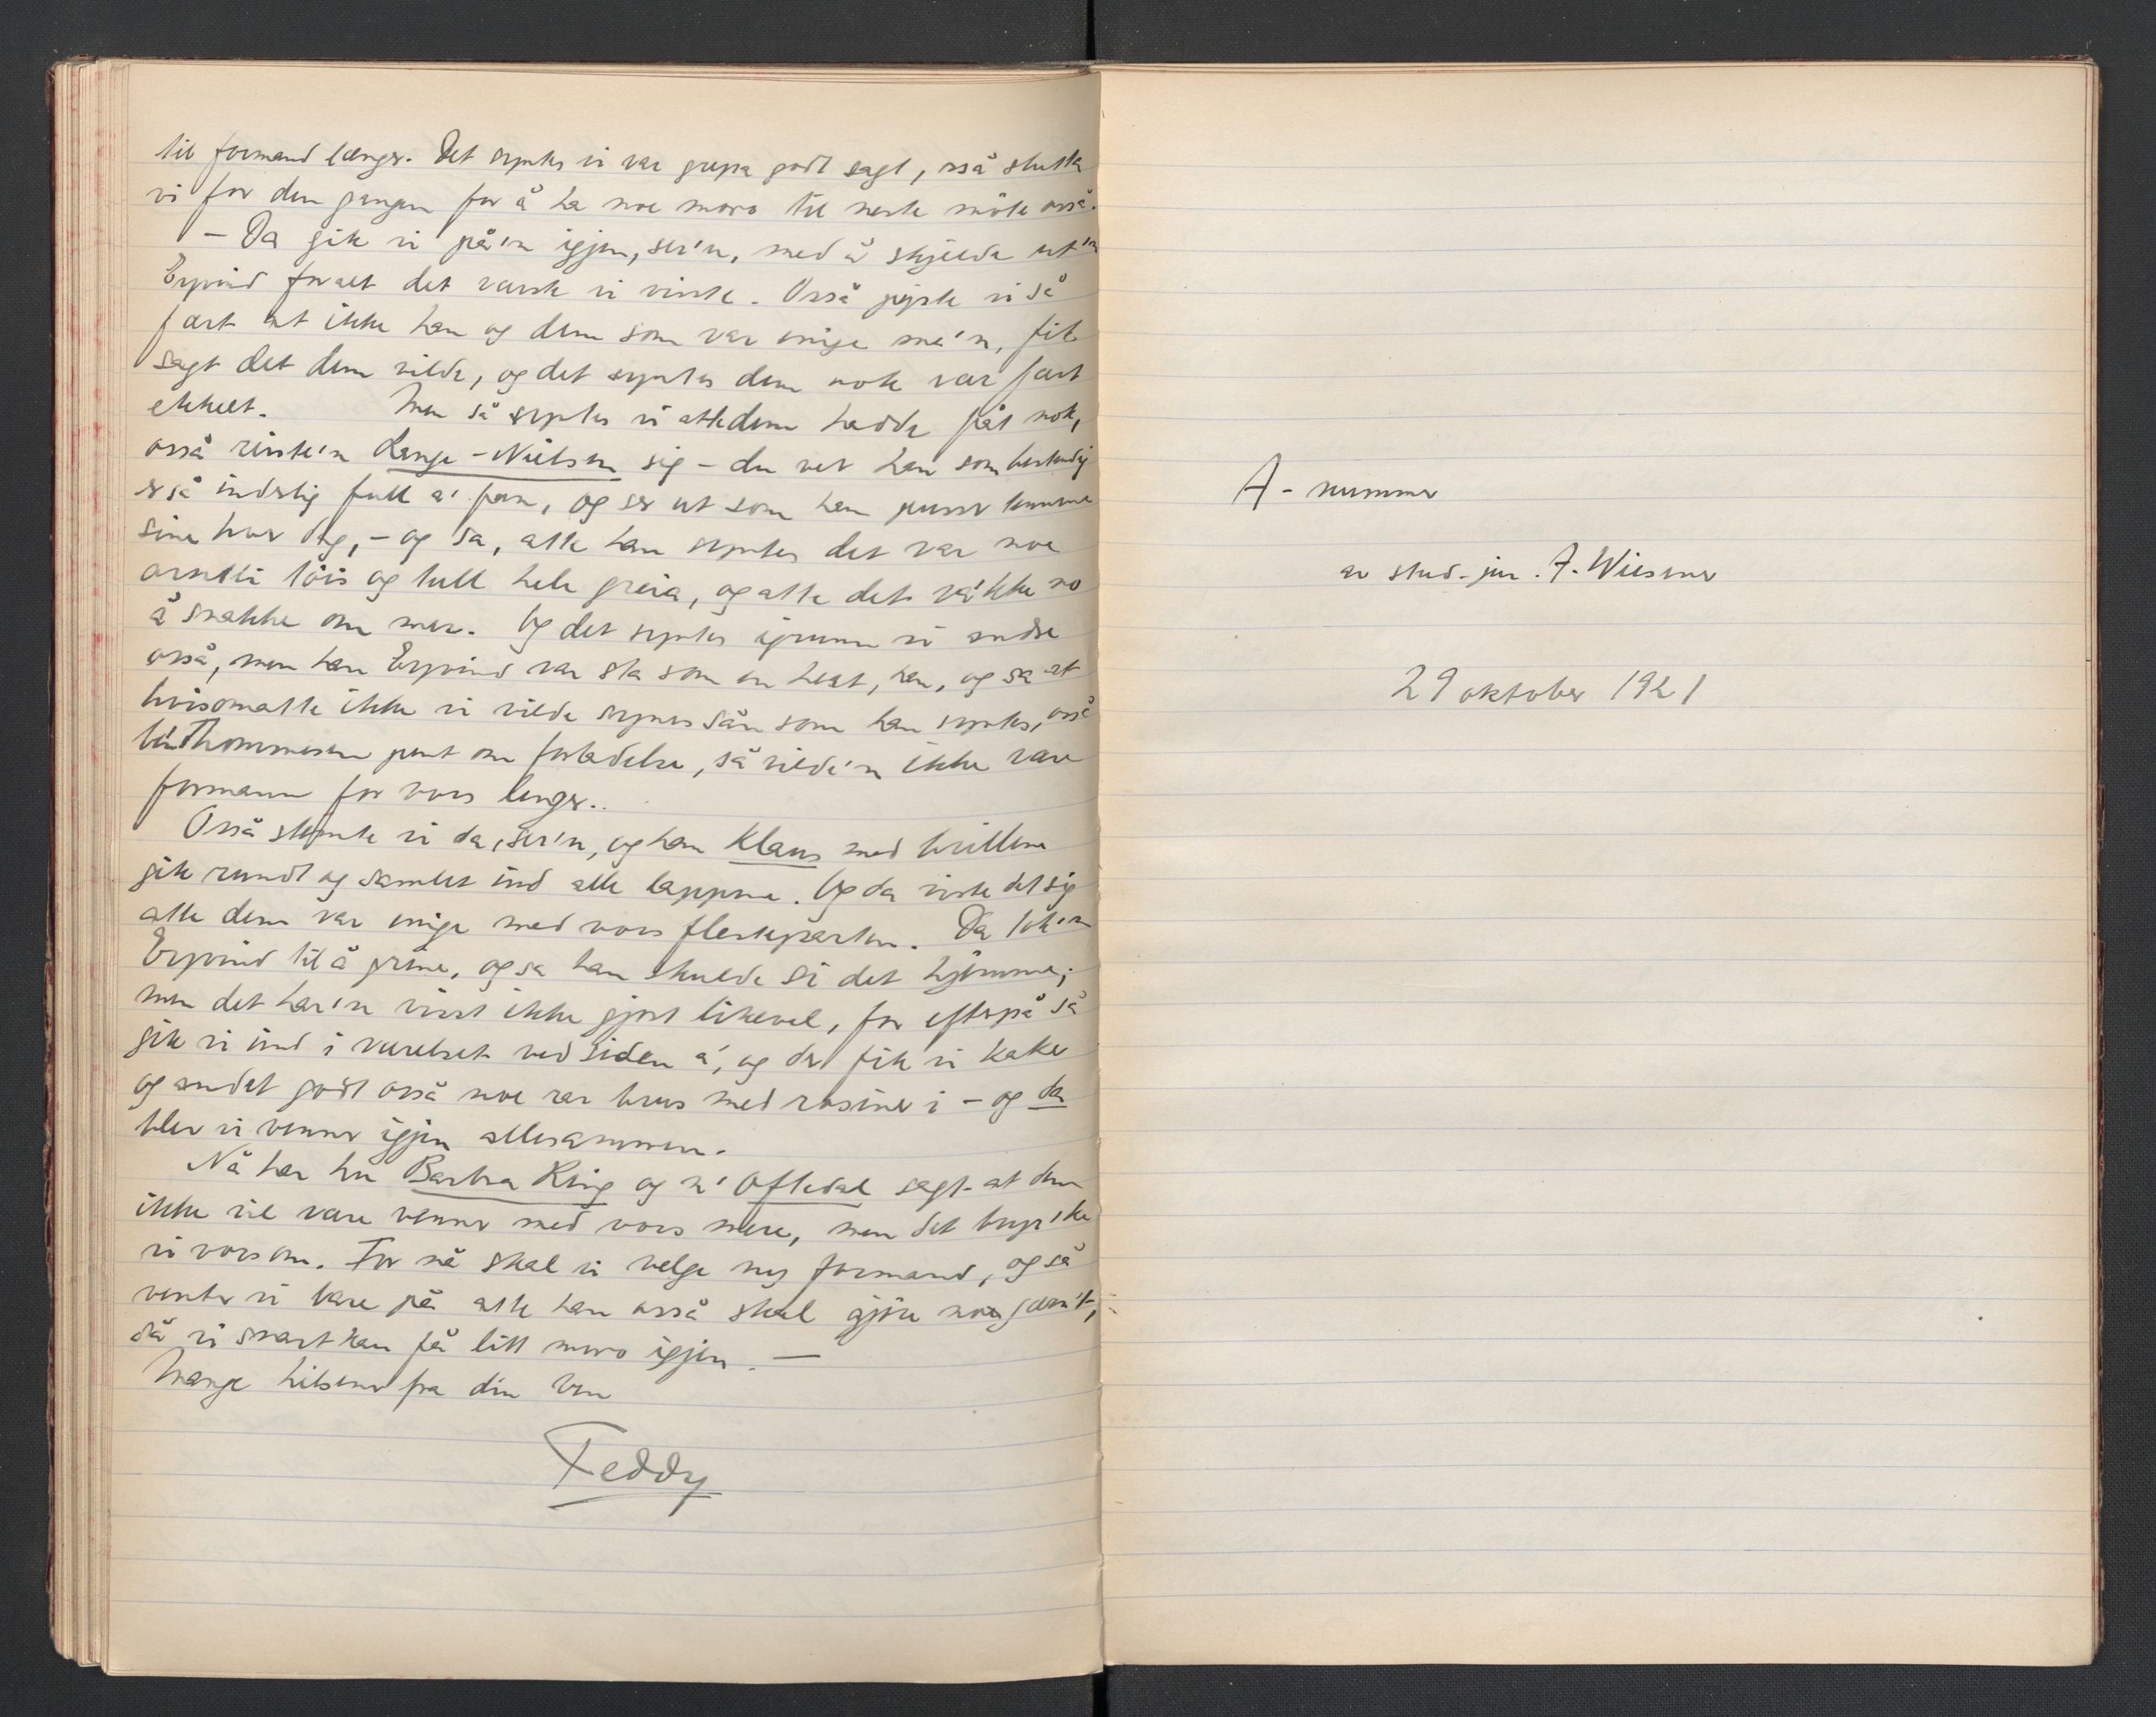 til formand længer. Det syntes vi var grepa godt sagt, osså slutta
vi for den gangen for å ha noe moro til neste møte osså.
— Da gik vi på'n igjen, ser'u, med å skjelde ut'n
Eyvind for alt det værste vi visste. Osså pejste vi så
fælt at ikke han og dem som var enige me'n, fik
sagt det dem vilde, og det syntes dem nok var fælt
ekkelt. Men så syntes vi atte dem hadde fåt nok,
osså reiste'n Lange-Nielsen sig - du vet han som bestandig
er så inderlig full a' fan, og ser ut som han pusser tennene
sine hver dag, - og sa, atte han syntes det var noe
ornkli töis og tull hele greia, og atte det va'kke no
å snakke om mer. Og det syntes igrunn vi andre
osså, men han Eyvind var sta som en hest, han, og sa at
hvisomatte ikke vi vilde synes sån som han syntes, osså
be Thommesen pent om forladelse, så vilde'n ikke være
formann for vors lenger..
Osså stemte vi da, ser'u, og han Klaus med brillene
gik rundt og samlet ind alle lappene. Og da viste det sig
atte dem var enige med vors flesteparten. Da tok'n
Eyvind til å grine, og sa han skulde si det hjemme;
men det har'n visst ikke gjort likevel, for efterpå så
gik vi ind i værelset ved siden a', og der fik vi kaker
og andet godt osså noe rar brus med rosiner i - og da
blev vi venner igjen allesammen.
Nå har hu Barbra Ring og n' Oftedal sagt at dem
ikke vil være venner med vors mere, men det bryr'ke
vi vors om. For nå skal vi velge ny formand, og så
venter vi bare på atte han osså skal gjøre noe gærn't,
så vi snart kan få litt moro igjen. —
Mange hilsener fra din ven
Teddy
A- nummer
av stud. jur. F. Wiesener
29 oktober 1921